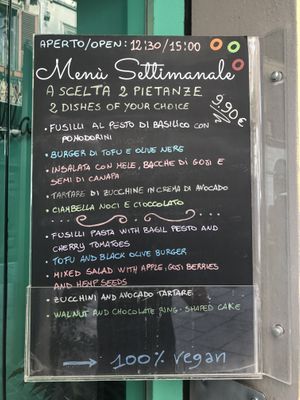 APERTO/OPEN: 12:30/15:00
Menù Settimanale
A SCELTA 2 PIETANZE
2 DISHES OF YOUR CHOICE
9,90€
• FUSILLI AL PESTO DI BASILICO CON
POMODORINI
• BURGER DI TOFU E OLIVE NERE
• INSALATA CON MELE, BACCHE DI GOJI E
SEMI DI CANAPA
• TARTARE DI ZUCCHINE IN CREMA DI AVOCADO
• CIAMBELLA NOCI E CIOCCOLATO
• FUSILLI PASTA WITH BASIL PESTO AND
CHERRY TOMATOES
• TOFU AND BLACK OLIVE BURGER
• MIXED SALAD WITH APPLE, GOJI BERRIES
AND HEMP SEEDS
• ZUCCHINI AND AVOCADO TARTARE
• WALNUT AND CHOCOLATE RING-SHAPED CAKE
→ 100% vegan